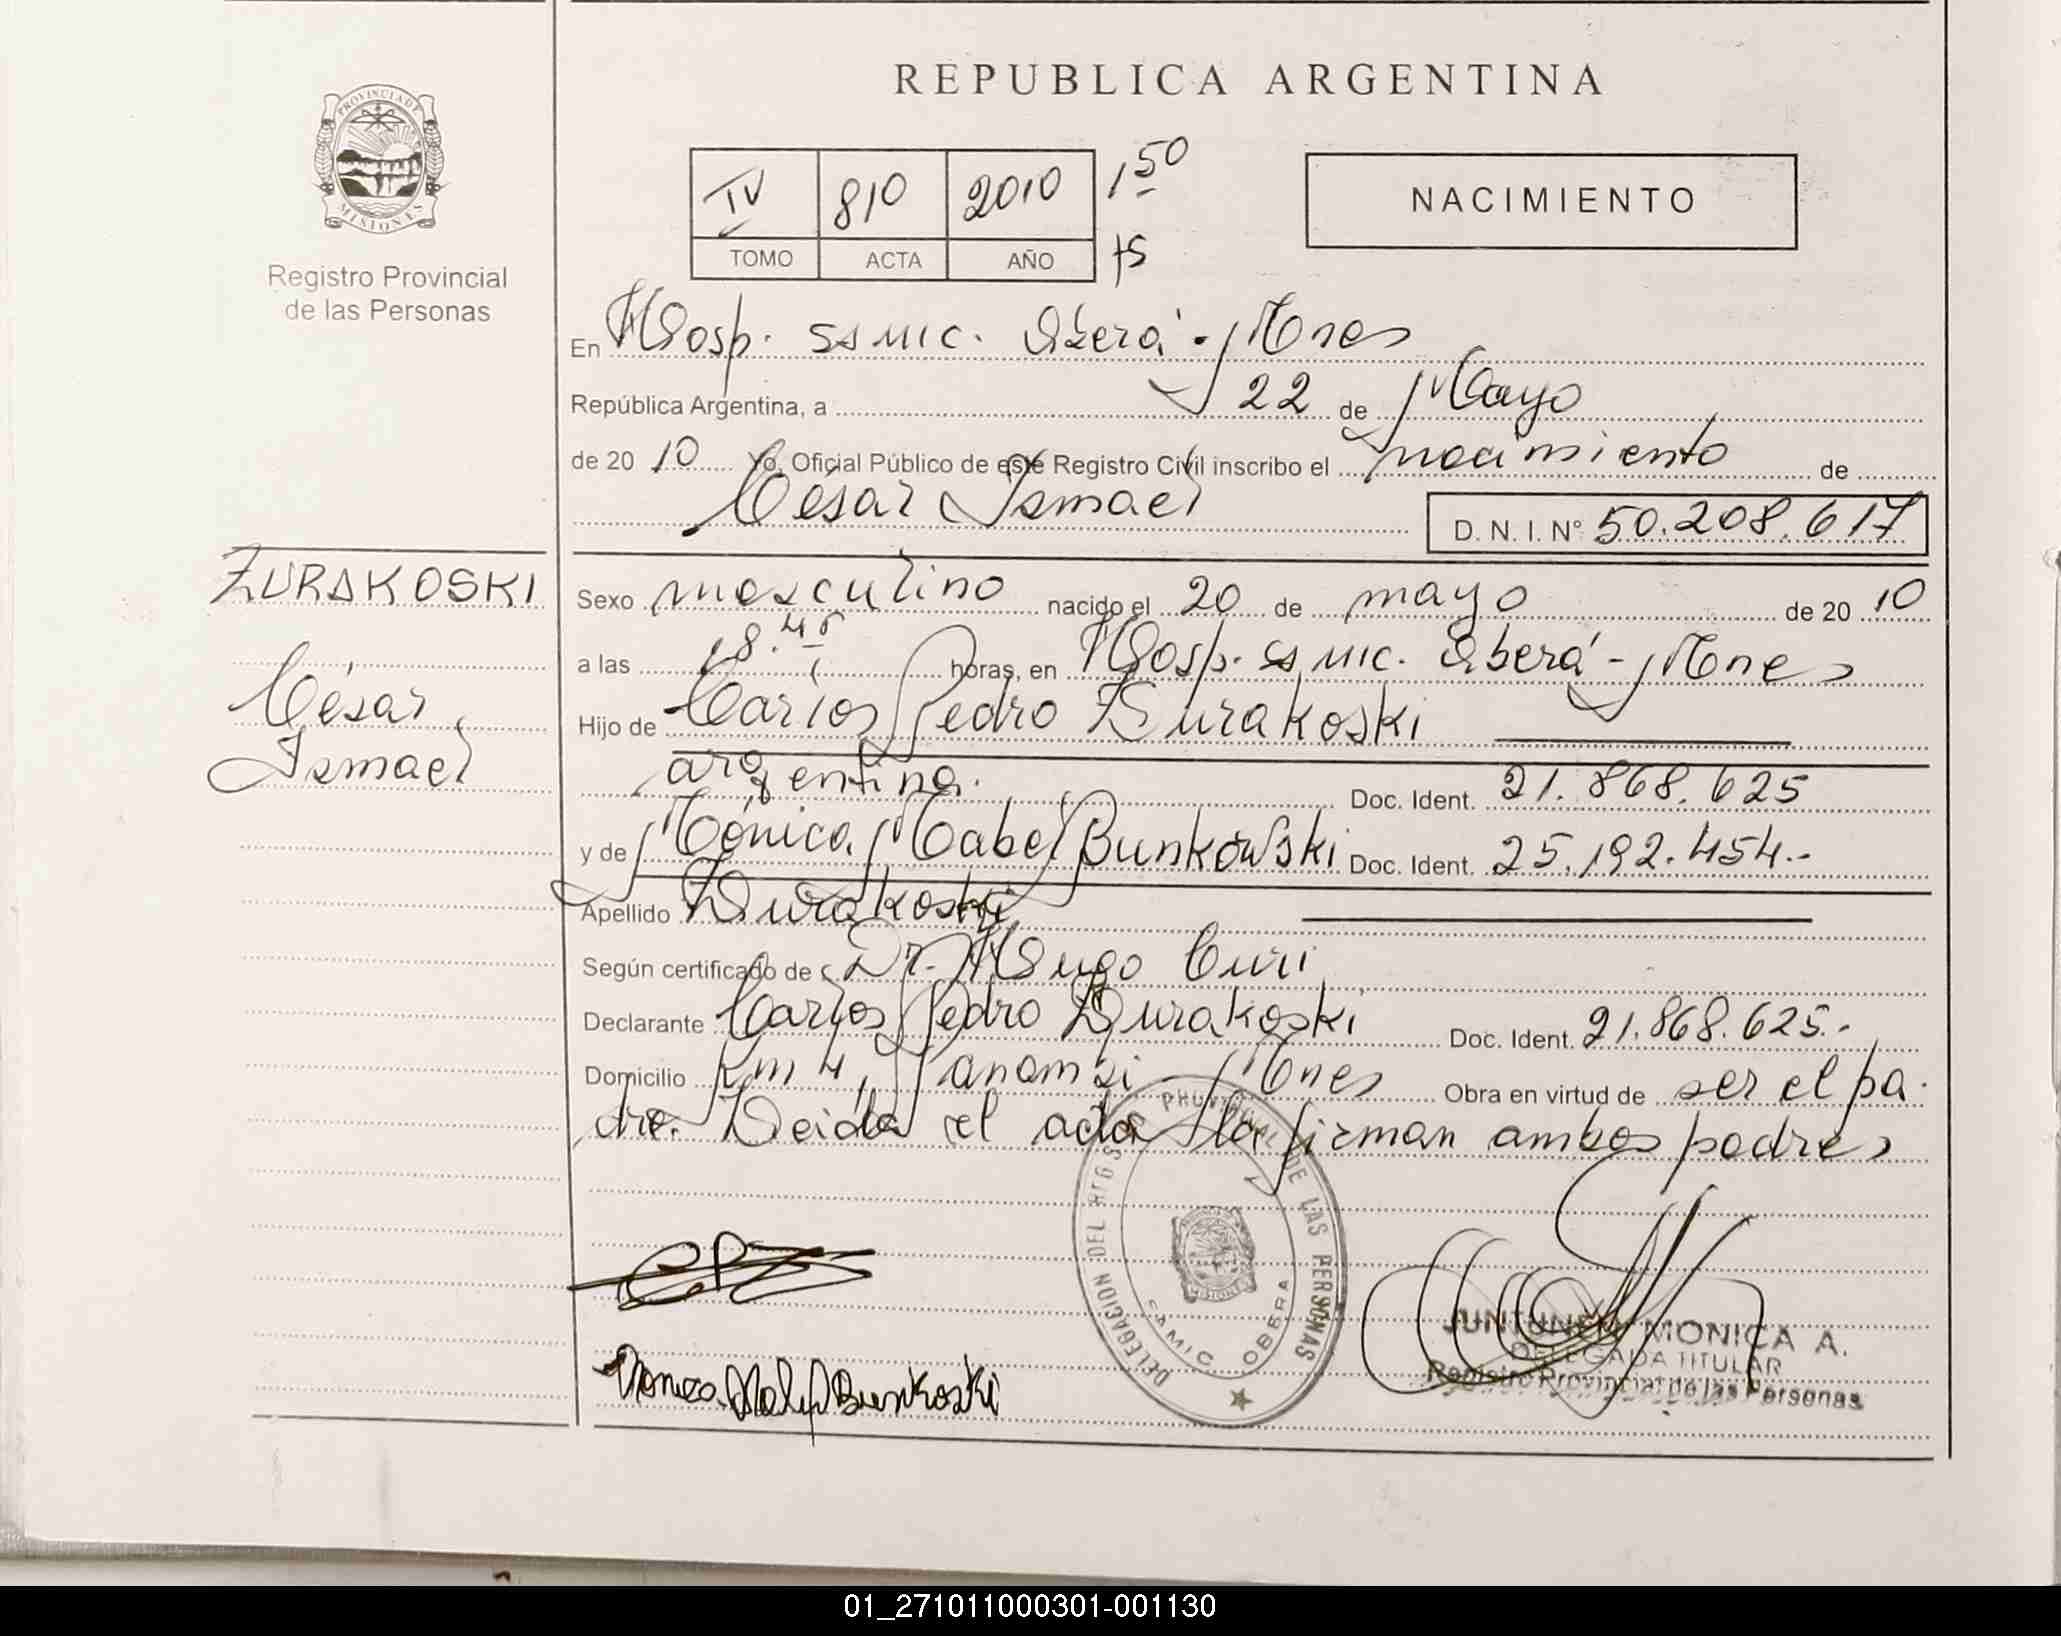 REPUBLICA ARGENTINA
PROVINCIA DE
MISIONES
Registro Provincial
de las Personas
IV 810 2010 1 50
TOMO ACTA AÑO
NACIMIENTO
En Hosp. SAMIC. Oberá - Mnes
República Argentina, a 22 de Mayo
de 20 10 Yo, Oficial Público de este Registro Civil inscribo el nacimiento de
César Ismael D. N. I. Nº 50.208.617
ZURAKOSKI
César
Ismael
Sexo masculino nacido el 20 de mayo de 20 10
a las 18.45 horas, en Hosp. SAMIC. Oberá - Mnes
Hijo de Carlos Pedro Zurakoski
argentina. Doc. Ident. 21.868.625
y de Mónica Mabel Bunkowski Doc. Ident. 25.192.454.-
Apellido Zurakoski
Según certificado de Dr. Hugo Curi
Declarante Carlos Pedro Zurakoski Doc. Ident. 21.868.625.-
Domicilio Km 4, Panambi - Mnes Obra en virtud de ser el pa-
dre. Leída el acta la firman ambos padres
DELEGACION DEL PROVINCIAL DE LAS PERSONAS
SAMIC OBERA
CPZ
Monica Mabel Bunkoski
JUNTUNEN MONICA A.
DELEGADA TITULAR
Registro Provincial de las Personas
01_271011000301-001130